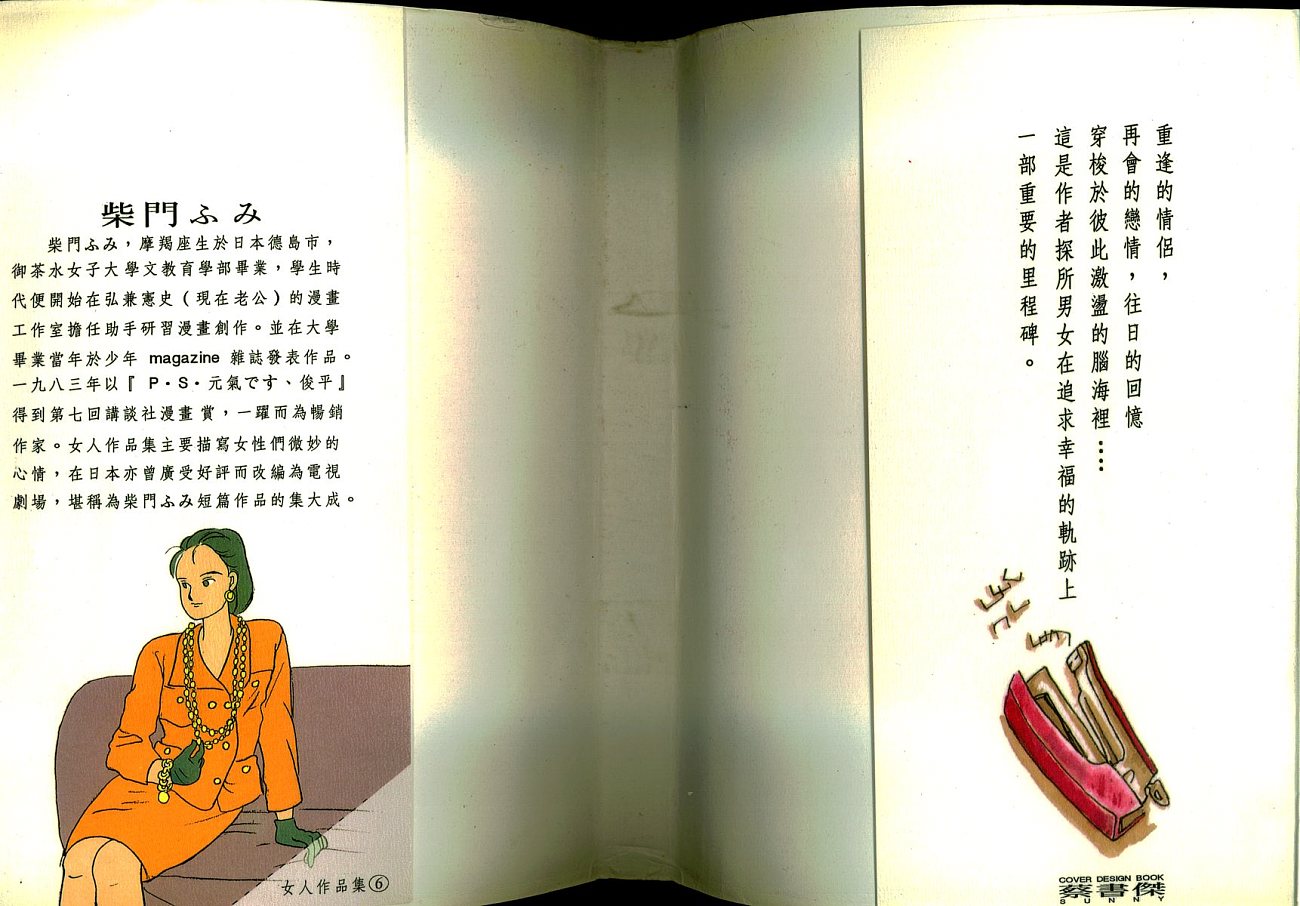 柴門ふみ
柴門ふみ，摩羯座生於日本德島市，
御茶水女子大學文教育學部畢業，學生時
代便開始在弘兼憲史（現在老公）的漫畫
工作室擔任助手研習漫畫創作。並在大學
畢業當年於少年 magazine 雜誌發表作品。
一九八三年以『 P・S・元氣です、俊平』
得到第七回講談社漫畫賞，一躍而為暢銷
作家。女人作品集主要描寫女性們微妙的
心情，在日本亦曾廣受好評而改編為電視
劇場，堪稱為柴門ふみ短篇作品的集大成。
女人作品集⑥
重逢的情侶，
再會的戀情，往日的回憶
穿梭於彼此激盪的腦海裡……
這是作者探所男女在追求幸福的軌跡上
一部重要的里程碑。
COVER DESIGN BOOK
蔡書傑
SUNNY